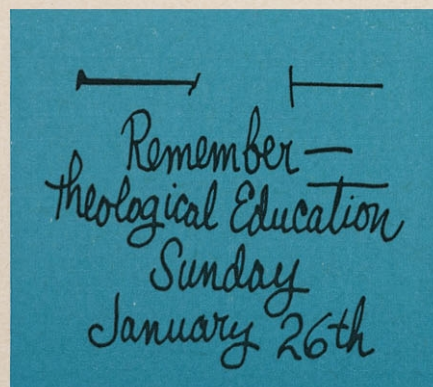 Remember —
Theological Education
Sunday
January 26th